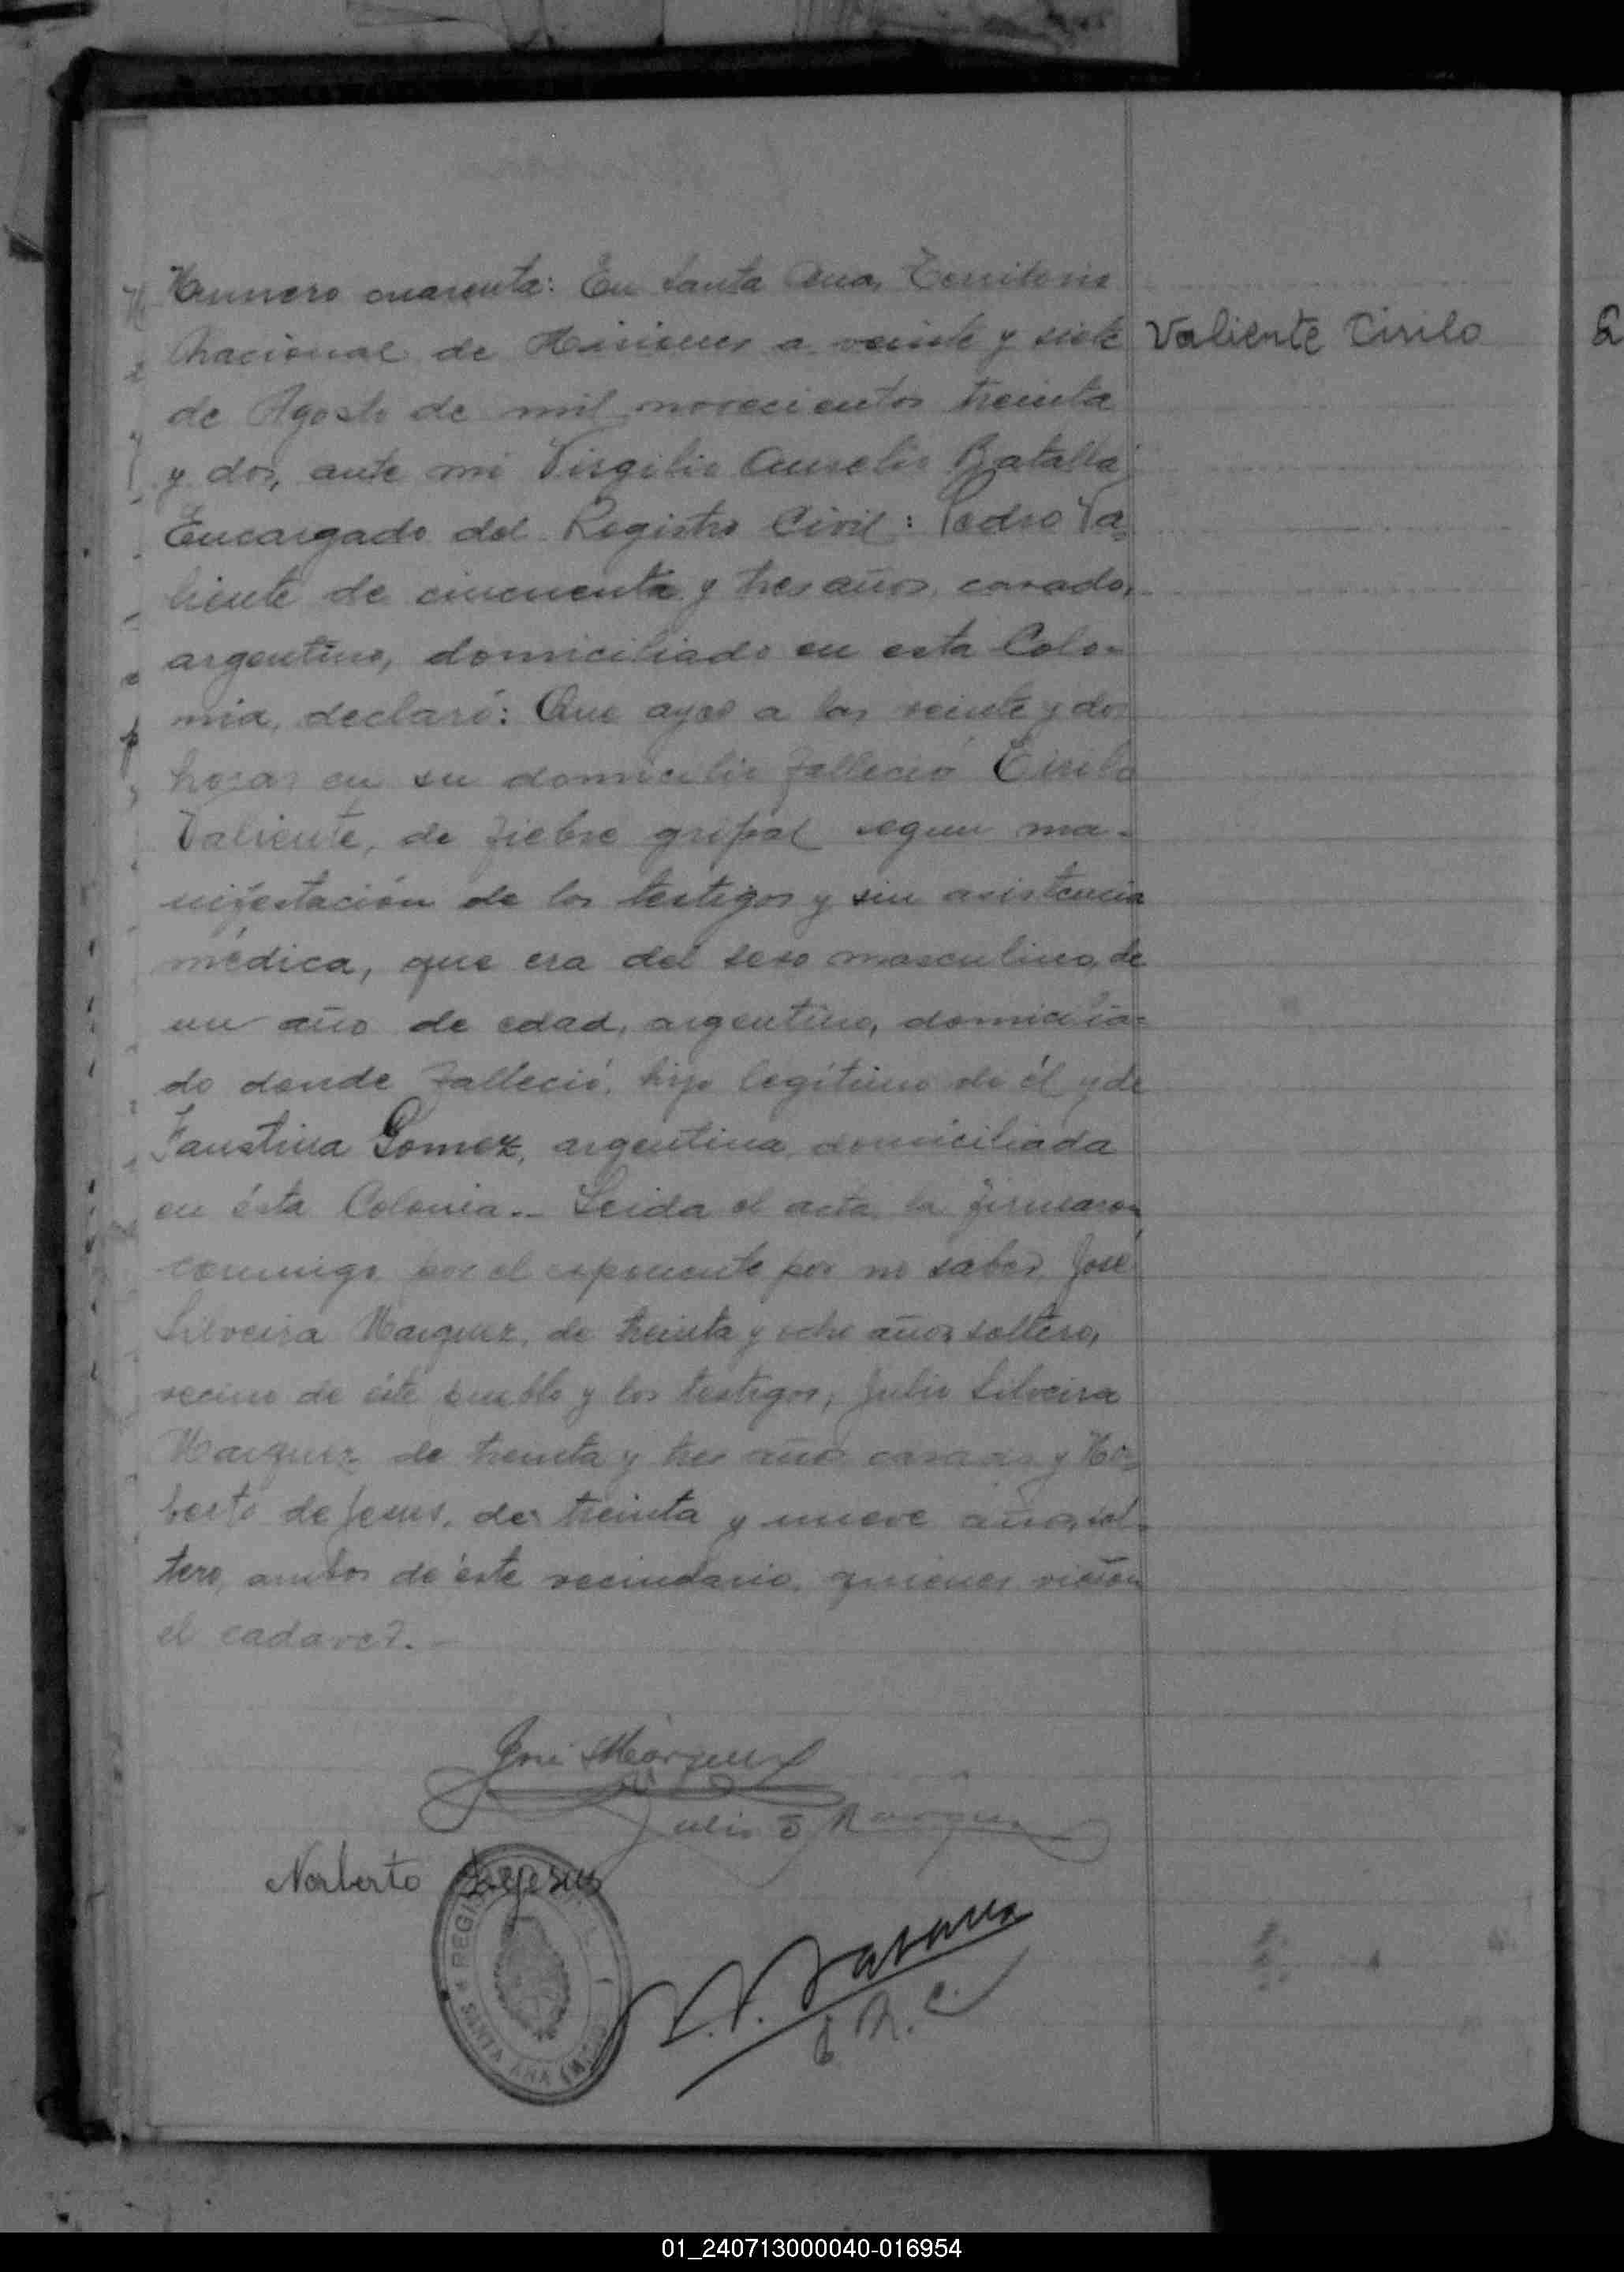 Numero cuarenta: En Santa Ana, Territorio
Nacional de Misiones a veinte y siete
Valiente Cirilo
de Agosto de mil novecientos treinta
y dos, ante mi Virgilio Aurelio Batalla
Encargado del Registro Civil: Pedro Va=
liente de cincuenta y tres años, casado,
argentino, domiciliado en esta Colo=
nia, declaró: Que ayer a las veinte y dos
horas en su domicilio falleció Cirilo
Valiente, de fiebre gripal segun ma=
nifestación de los testigos y sin asistencia
médica, que era del sexo masculino, de
un año de edad, argentino, domicilia=
do donde falleció, hijo legítimo de él y de
Faustina Gomez, argentina, domiciliada
en ésta Colonia.- Leida el acta, la firmaron
conmigo por el exponente por no saber, José
Silveira Marquez, de treinta y ocho años, soltero,
vecino de éste pueblo y los testigos, Julio Silveira
Marquez de treinta y tres años casado y No=
berto de Jesus, de treinta y nueve años, sol=
tero, ambos de éste vecindario, quienes vieron
el cadaver.-
José S Márquez
Julio S Marquez
Norberto dejesus
REGISTRO CIVIL
SANTA ANA
E. R. C.
01_240713000040-016954